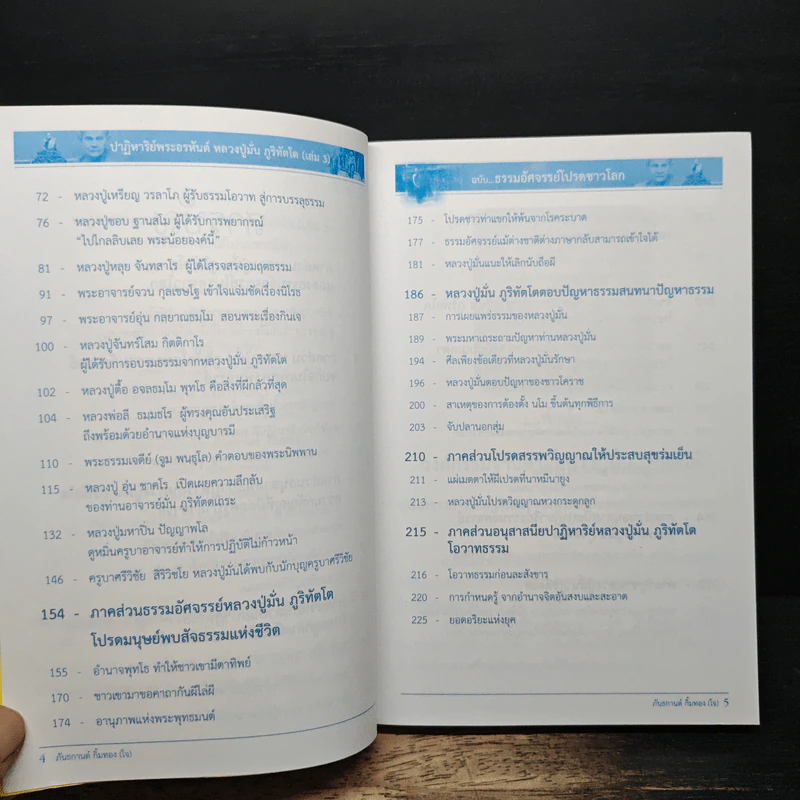 ปาฏิหาริย์พระอรหันต์ หลวงปู่มั่น ภูริทัตโต (เล่ม 3)
72 - หลวงปู่เหรียญ วรลาโภ ผู้รับธรรมโอวาท สู่การบรรลุธรรม
76 - หลวงปู่ชอบ ฐานสโม ผู้ได้รับการพยากรณ์
"ไปไกลลิบเลย พระน้อยองค์นี้"
81 - หลวงปู่หลุย จันทสาโร ผู้ได้โสรจสรงอมฤตธรรม
91 - พระอาจารย์จวน กุลเชษโฐ เข้าใจแจ่มชัดเรื่องนิโรธ
97 - พระอาจารย์อุ่น กลยาณธมฺโม สอนพระเรื่องกินเจ
100 - หลวงปู่จันทร์โสม กิตติกาโร
ผู้ได้รับการอบรมธรรมจากหลวงปู่มั่น ภูริทัตโต
102 - หลวงปู่ตื้อ อจลธมฺโม พุทโธ คือสิ่งที่ผีกลัวที่สุด
104 - หลวงพ่อลี ธมฺมธโร ผู้ทรงคุณอันประเสริฐ
ถึงพร้อมด้วยอำนาจแห่งบุญบารมี
110 - พระธรรมเจดีย์ (จูม พนฺธุโล) คำตอบของพระนิพพาน
115 - หลวงปู่ อุ่น ชาคโร เปิดเผยความลึกลับ
ของท่านอาจารย์มั่น ภูริทัตตเถระ
132 - หลวงปู่มหาปิ่น ปัญญาพโล
ดูหมิ่นครูบาอาจารย์ทำให้การปฏิบัติไม่ก้าวหน้า
146 - ครูบาศรีวิชัย สิริวิชโย หลวงปู่มั่นได้พบกับนักบุญครูบาศรีวิชัย
154 - ภาคส่วนธรรมอัศจรรย์หลวงปู่มั่น ภูริทัตโต
โปรดมนุษย์พบสัจธรรมแห่งชีวิต
155 - อำนาจพุทโธ ทำให้ชาวเขามีตาทิพย์
170 - ชาวเขามาขอคาถากันผีไล่ผี
174 - อานุภาพแห่งพระพุทธมนต์
4 ภันธกานต์ กิ้มทอง (ใจ)
ฉบับ...ธรรมอัศจรรย์โปรดชาวโลก
175 - โปรดชาวท่าแขกให้พ้นจากโรคระบาด
177 - ธรรมอัศจรรย์แม้ต่างชาติต่างภาษากลับสามารถเข้าใจได้
181 - หลวงปู่มั่นแนะให้เลิกนับถือผี
186 - หลวงปู่มั่น ภูริทัตโตตอบปัญหาธรรมสนทนาปัญหาธรรม
187 - การเผยแพร่ธรรมของหลวงปู่มั่น
189 - พระมหาเถระถามปัญหาท่านหลวงปู่มั่น
194 - ศีลเพียงข้อเดียวที่หลวงปู่มั่นรักษา
196 - หลวงปู่มั่นตอบปัญหาของชาวโคราช
200 - สาเหตุของการต้องตั้ง นโม ขึ้นต้นทุกพิธีการ
203 - จับปลานอกสุ่ม
210 - ภาคส่วนโปรดสรรพวิญญาณให้ประสบสุขร่มเย็น
211 - แผ่เมตตาให้ผีเปรตที่นาหมีนายูง
213 - หลวงปู่มั่นโปรดวิญญาณหวงกระดูกลูก
215 - ภาคส่วนอนุสาสนียปาฏิหาริย์หลวงปู่มั่น ภูริทัตโต
โอวาทธรรม
216 - โอวาทธรรมก่อนละสังขาร
220 - การกำหนดรู้ จากอำนาจจิตอันสงบและสะอาด
225 - ยอดอริยะแห่งยุค
ภันธกานต์ กิ้มทอง (ใจ) 5